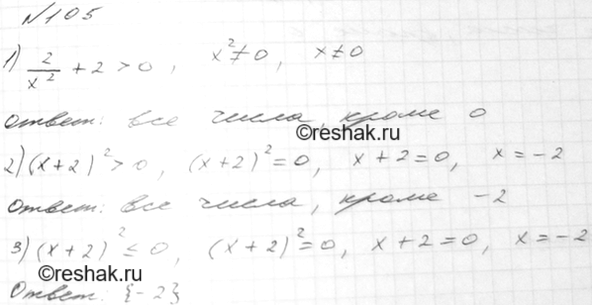 №105
1) 2/x² + 2 > 0, x² ≠ 0, x ≠ 0
ответ: все числа, кроме 0
©reshak.ru
2) (x+2)² > 0, (x+2)² = 0, x + 2 = 0, x = -2
ответ: все числа, кроме -2
3) (x+2)² ≤ 0, (x+2)² = 0, x + 2 = 0, x = -2
©reshak.ru
Ответ: {-2}